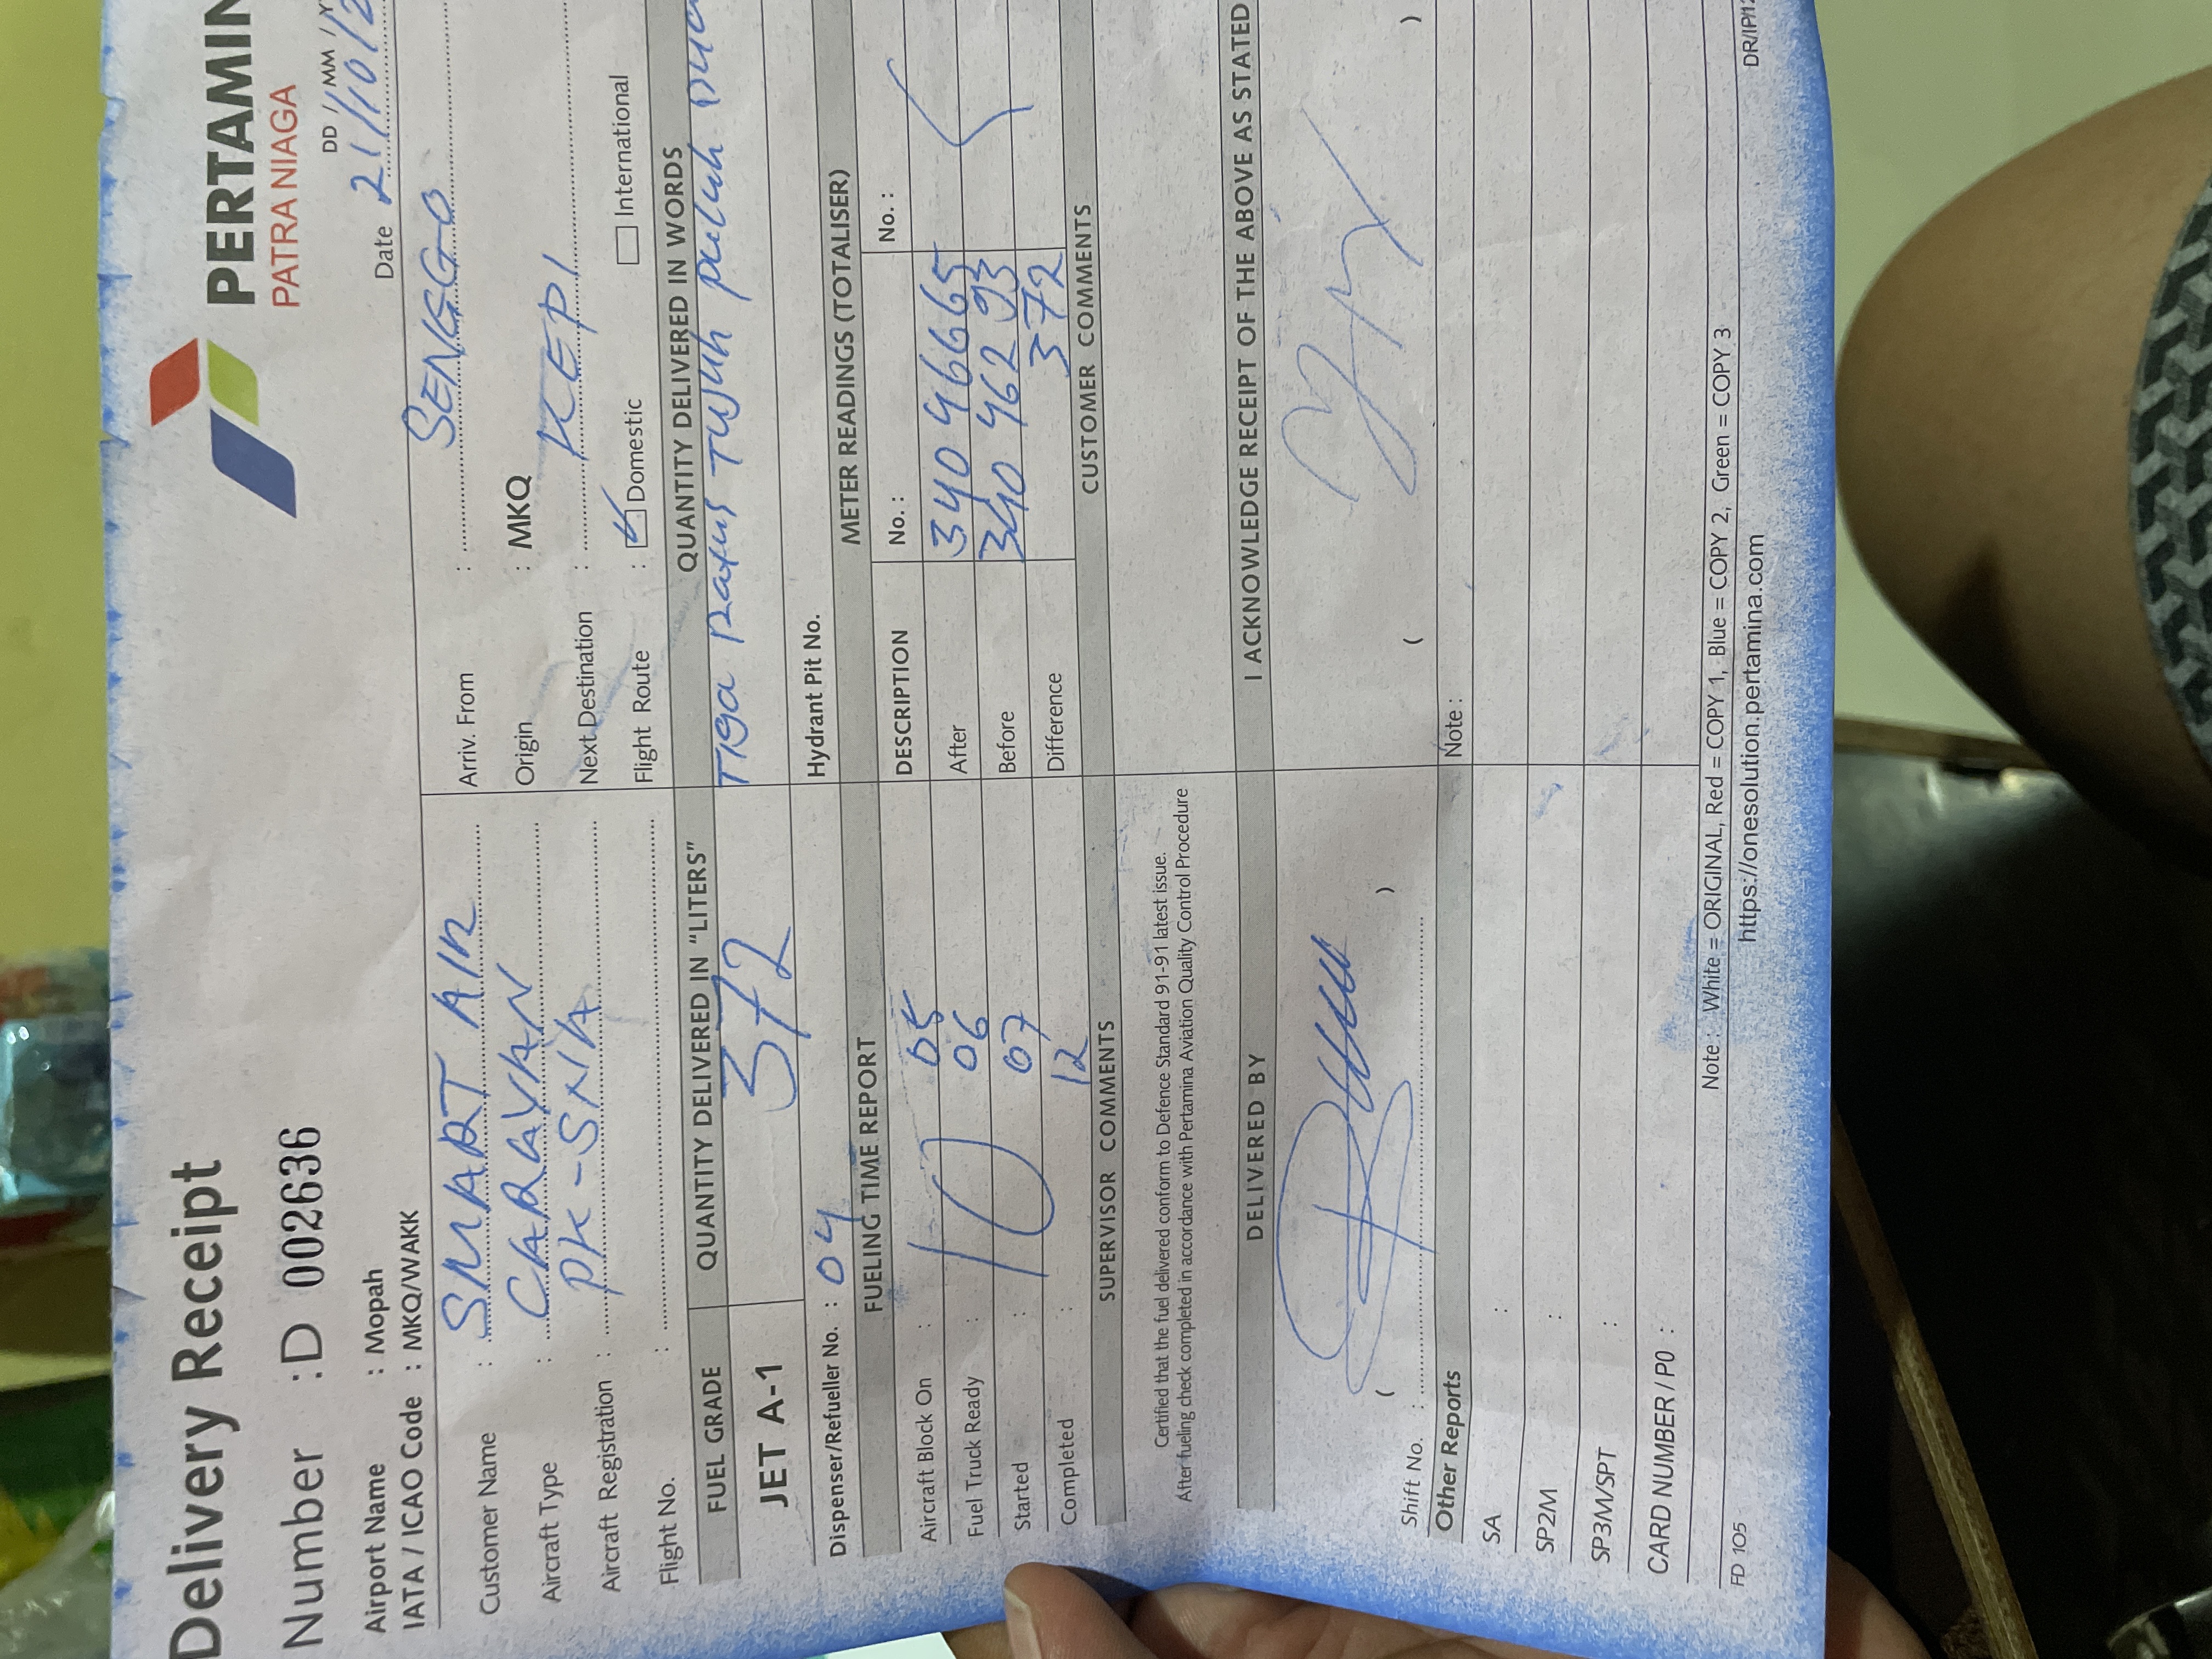 Delivery Receipt
PERTAMIN
PATRA NIAGA
Number : D 002636
DD / MM / Y
Date 21/10/2
Airport Name : Mopah
IATA / ICAO Code : MKQ/WAKK
Customer Name : SMART AIR
Aircraft Type : CARAVAN
Aircraft Registration : PK-SNA
Flight No. :
Arriv. From : SENGGO
Origin : MKQ
Next Destination : KEPI
Flight Route : Domestic International
FUEL GRADE QUANTITY DELIVERED IN "LITERS" QUANTITY DELIVERED IN WORDS
JET A-1 372 Tiga Ratus Tujuh puluh Dua
Dispenser/Refueller No. : 04 Hydrant Pit No.
FUELING TIME REPORT METER READINGS (TOTALISER)
DESCRIPTION No. : No. :
Aircraft Block On : 10 05 After 340 46665
Fuel Truck Ready : 06 Before 340 46293
Started : 07 Difference 372
Completed : 12
SUPERVISOR COMMENTS CUSTOMER COMMENTS
Certified that the fuel delivered conform to Defence Standard 91-91 latest issue.
After fueling check completed in accordance with Pertamina Aviation Quality Control Procedure
DELIVERED BY I ACKNOWLEDGE RECEIPT OF THE ABOVE AS STATED
( ) ( )
Shift No. :
Other Reports Note :
SA :
SP2M :
SP3M/SPT :
CARD NUMBER / PO :
Note : White = ORIGINAL, Red = COPY 1, Blue = COPY 2, Green = COPY 3
FD 105 https://onesolution.pertamina.com DR/IP/12